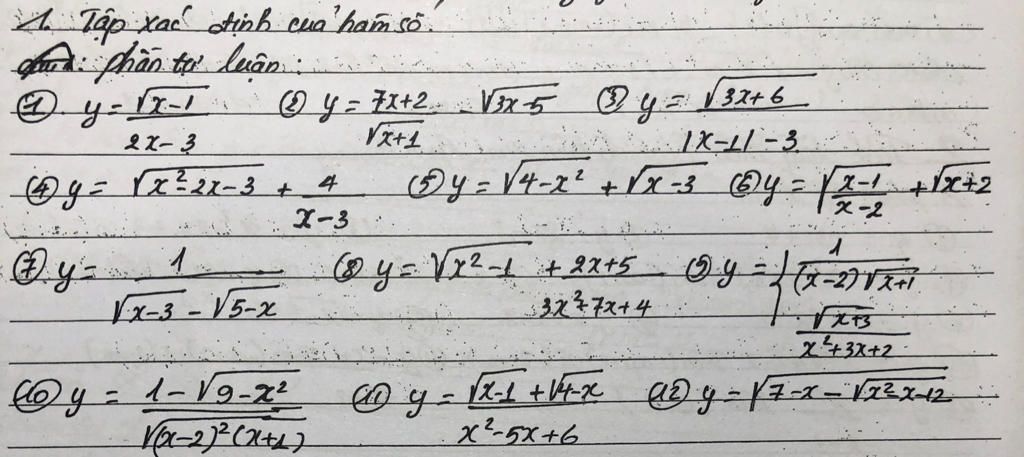 1. Tập xác định của hàm số.
: phần tự luận:
① y = √(x-1) / (2x-3) ② y = (7x+2) / √(x+1) - √(3x-5) ③ y = √(3x+6) / (|x-1| - 3)
④ y = √(x²-2x-3) + 4/(x-3) ⑤ y = √(4-x²) + √(x-3) ⑥ y = √((x-1)/(x-2)) + √(x+2)
⑦ y = 1 / (√(x-3) - √(5-x)) ⑧ y = √(x²-1) + (2x+5) / (3x²+7x+4) ⑨ y = { 1 / ((x-2)√(x+1)) ; √(x+3) / (x²+3x+2)
⑩ y = (1-√(9-x²)) / √((x-2)²(x+1)) ⑪ y = (√(x-1) + √(4-x)) / (x²-5x+6) ⑫ y = √(7-x-√(x²-x-12))